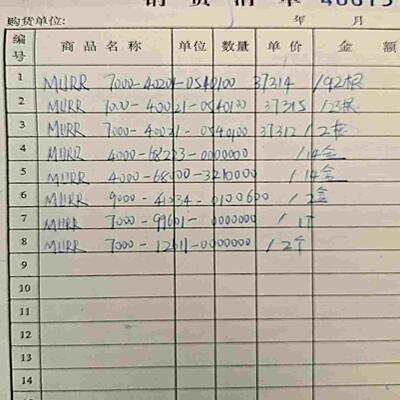 销货清单 40615
购货单位: 年 月
编号 商品名称 单位 数量 单价 金额
1 MURR 7000-40201-0540100 37314 /92根
2 MURR 7000-40021-0540100 37315 /23根
3 MURR 7000-40021-0540100 37312 /2根
4 MURR 4000-68223-0000000 /14盒
5 MURR 4000-68000-3210000 /14盒
6 MURR 9000-41034-0100600 /2盒
7 MURR 7000-99601-0000000 /1个
8 MURR 7000-12611-0000000 /2个
9
10
11
12
13
14